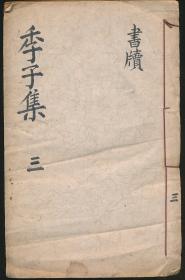 書牘
季子集
三
三